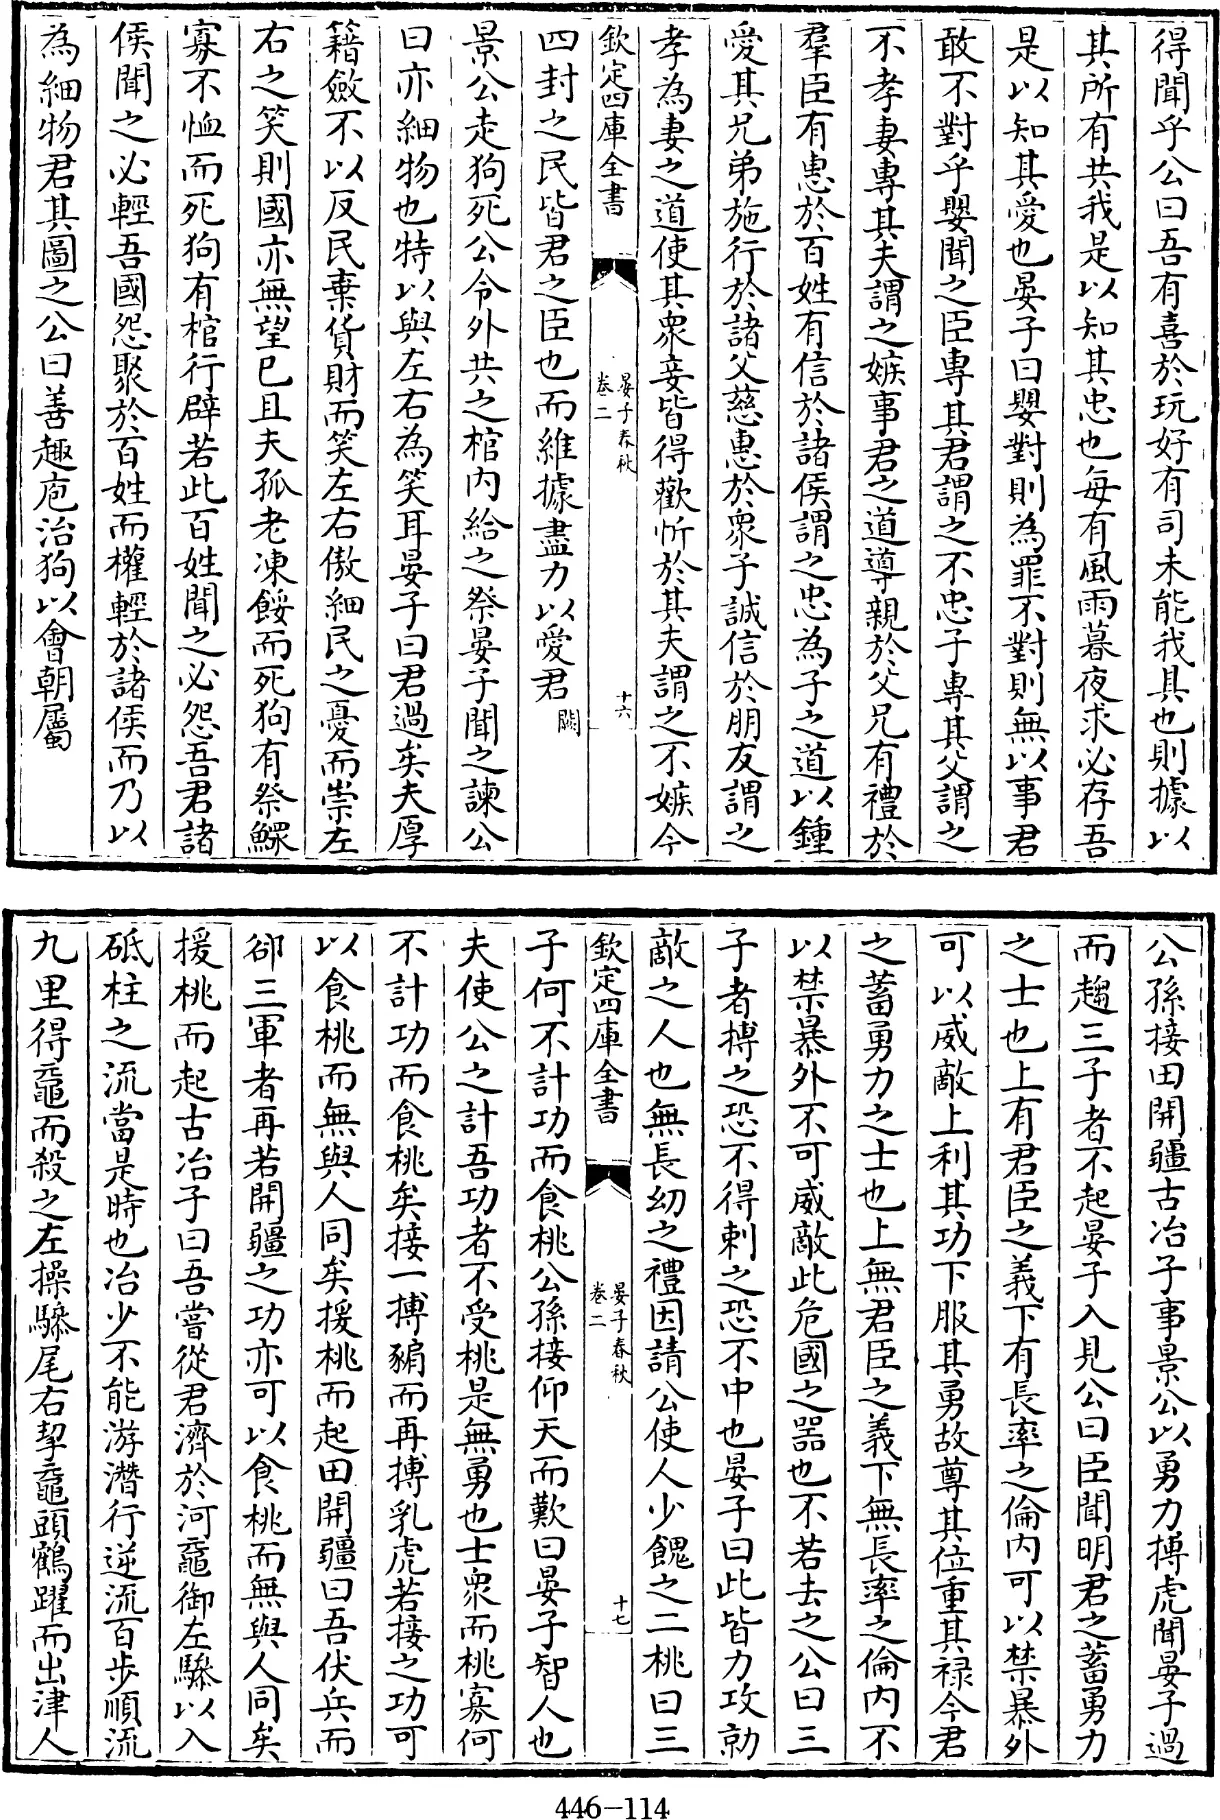 得聞乎公曰吾有喜於玩好有司未能我具也則據以
其所有共我是以知其忠也每有風雨暮夜求必存吾
是以知其愛也晏子曰嬰對則為罪不對則無以事君
敢不對乎嬰聞之臣專其君謂之不忠子專其父謂之
不孝妻專其夫謂之嫉事君之道導親於父兄有禮於
羣臣有惠於百姓有信於諸侯謂之忠為子之道以鍾
愛其兄弟施行於諸父慈惠於衆子誠信於朋友謂之
孝為妻之道使其衆妾皆得歡忻於其夫謂之不嫉今
欽定四庫全書
晏子春秋
卷二
十六
四封之民皆君之臣也而維據盡力以愛君闕
景公走狗死公令外共之棺内給之祭晏子聞之諫公
曰亦細物也特以與左右為笑耳晏子曰君過矣夫厚
籍斂不以反民棄貨財而笑左右傲細民之憂而崇左
右之笑則國亦無望已且夫孤老凍餒而死狗有祭鰥
寡不恤而死狗有棺行辟若此百姓聞之必怨吾君諸
侯聞之必輕吾國怨聚於百姓而權輕於諸侯而乃以
為細物君其圖之公曰善趣庖治狗以會朝屬
公孫接田開疆古冶子事景公以勇力搏虎聞晏子過
而趨三子者不起晏子入見公曰臣聞明君之蓄勇力
之士也上有君臣之義下有長率之倫内可以禁暴外
可以威敵上利其功下服其勇故尊其位重其禄今君
之蓄勇力之士也上無君臣之義下無長率之倫内不
以禁暴外不可威敵此危國之器也不若去之公曰三
子者搏之恐不得刺之恐不中也晏子曰此皆力攻勍
敵之人也無長幼之禮因請公使人少餽之二桃曰三
欽定四庫全書
晏子春秋
卷二
十七
子何不計功而食桃公孫接仰天而歎曰晏子智人也
夫使公之計吾功者不受桃是無勇也士衆而桃寡何
不計功而食桃矣接一搏豣而再搏乳虎若接之功可
以食桃而無與人同矣援桃而起田開疆曰吾伏兵而
卻三軍者再若開疆之功亦可以食桃而無與人同矣
援桃而起古冶子曰吾嘗從君濟於河黿御左驂以入
砥柱之流當是時也冶少不能游潛行逆流百步順流
九里得黿而殺之左操驂尾右挈黿頭鶴躍而出津人
446-114